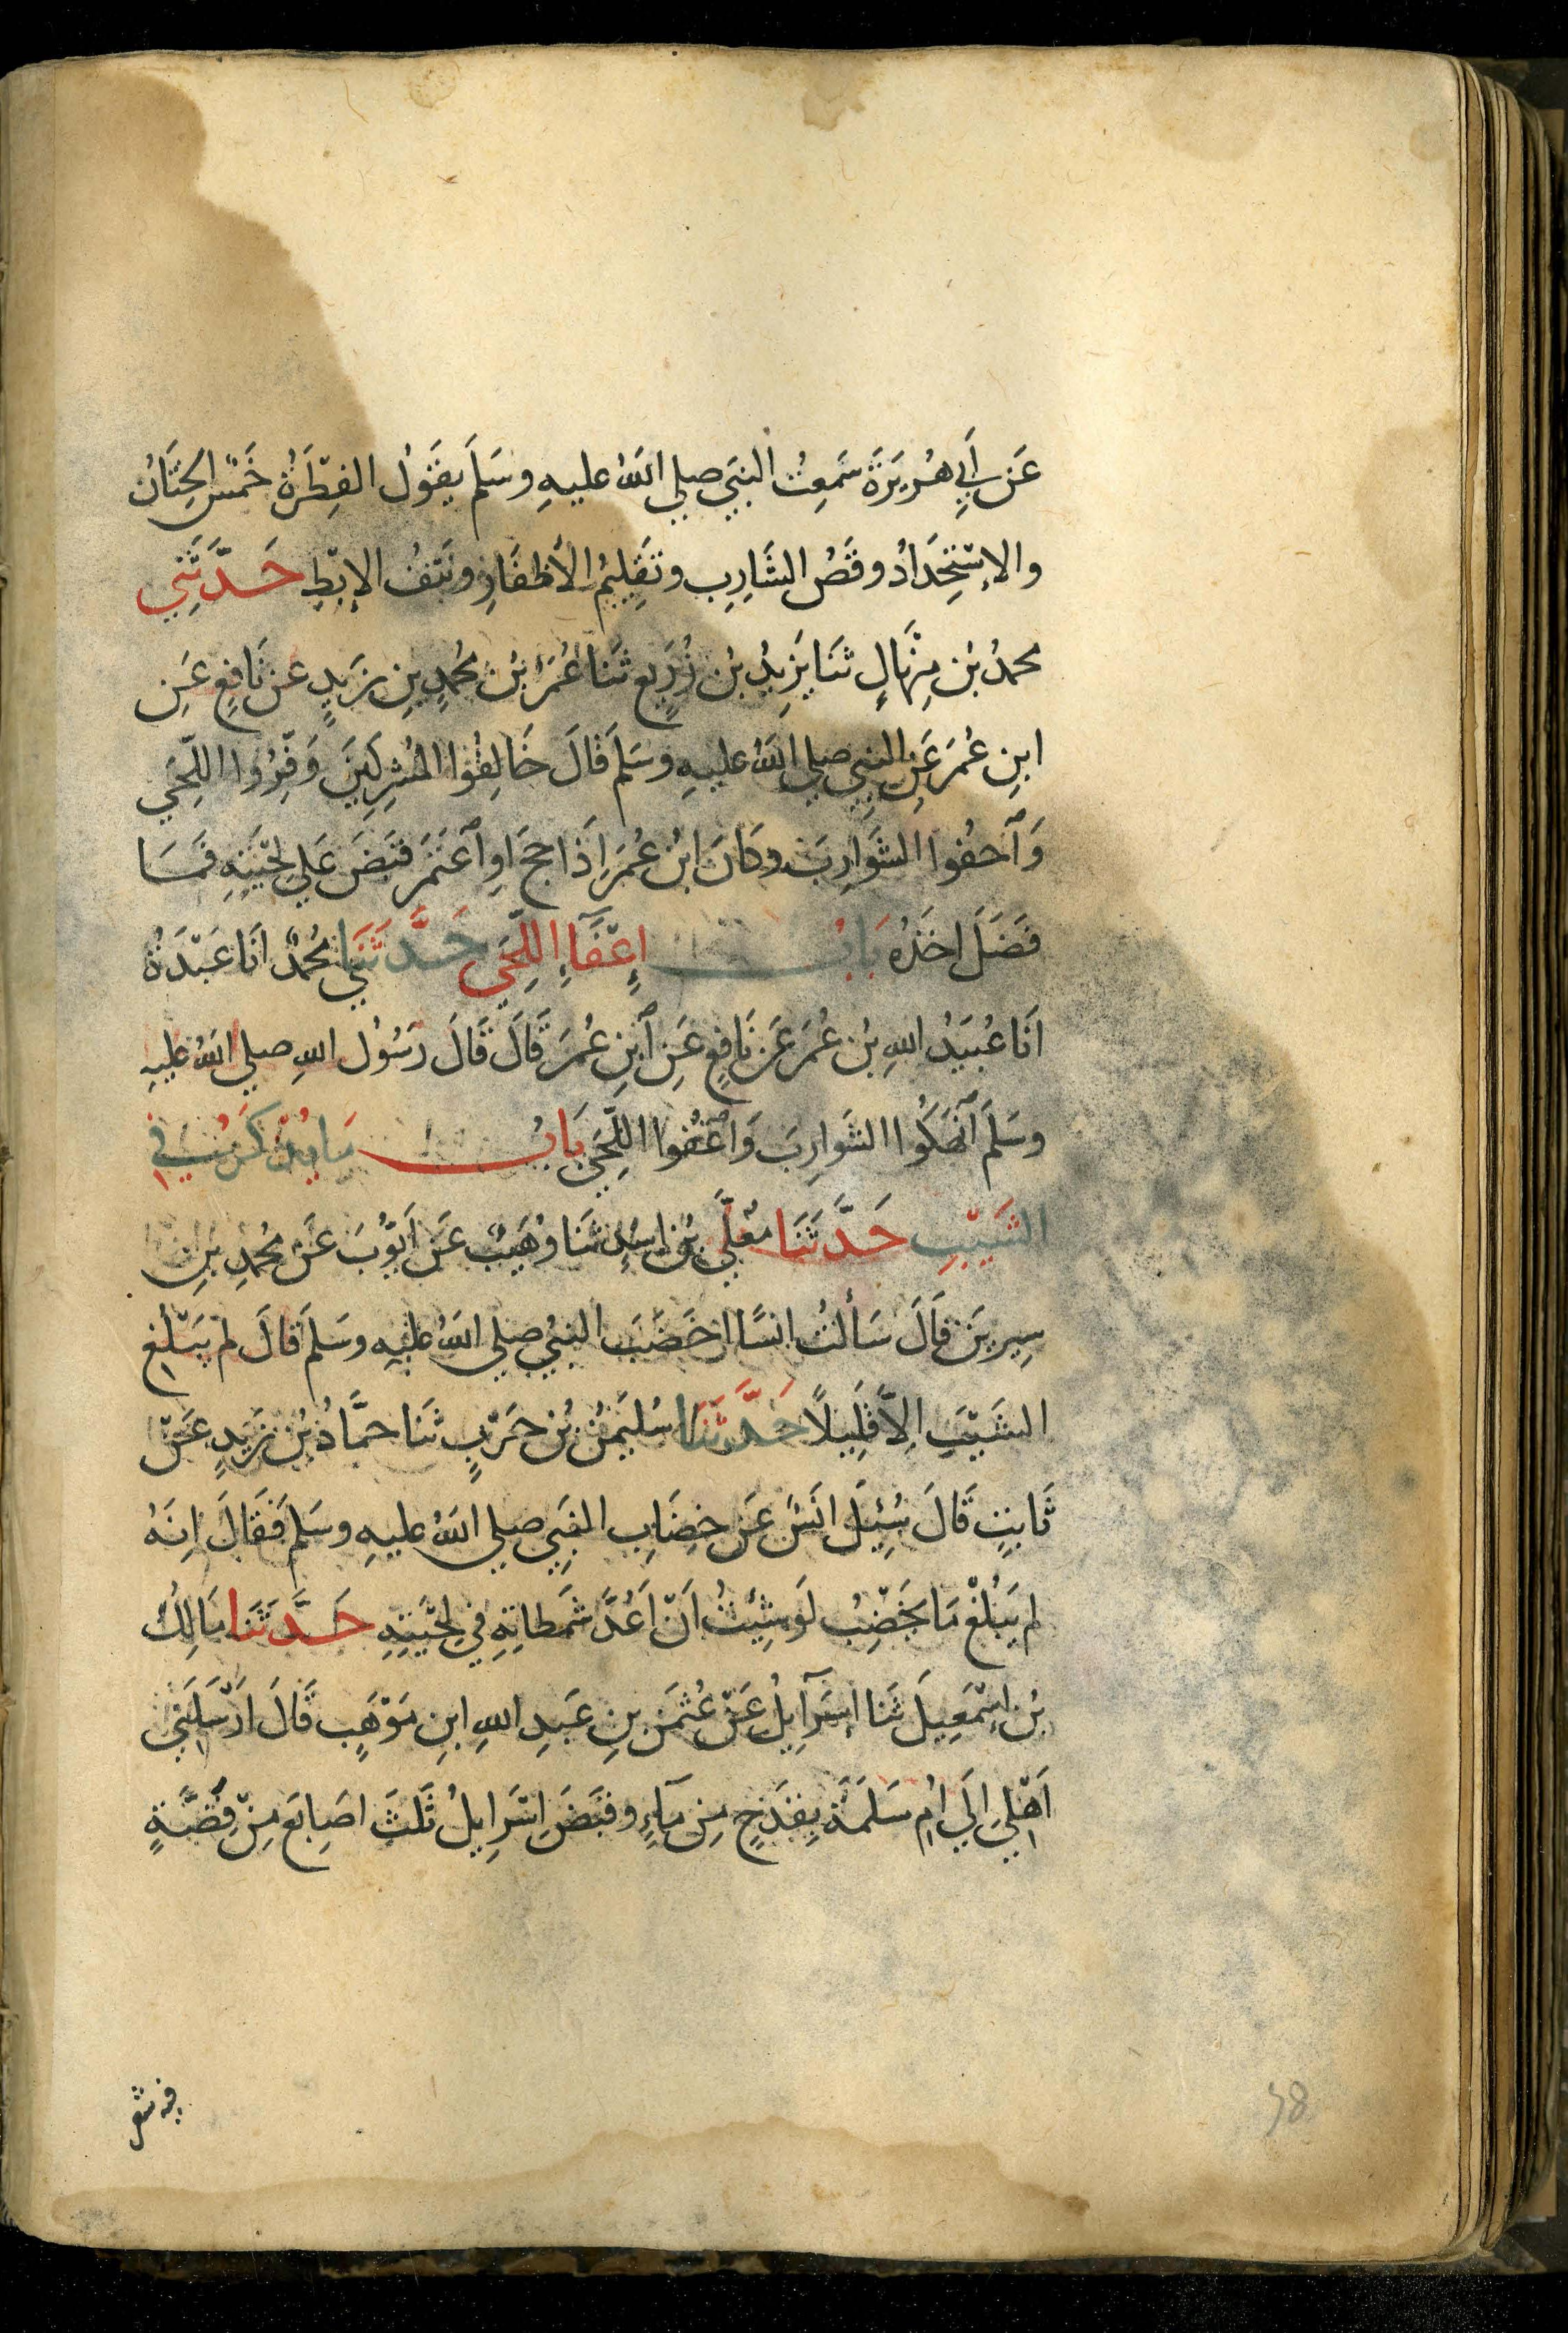 عَن أَبِي هُرَيرَةَ سَمِعتُ النبيَ صلي اللهُ عليهِ وسَلمَ يقَولُ الفِطرَةُ خَمسٌ الخِتَانُ
والاِستِحدَادُ وقَصُ الشَارِبِ وتَقلِيمُ الأَظفَارِ ونَتفُ الاِبْطِ حَدَّثَنِي
محمدُ بنُ مِنْهَالٍ ثنَا يَزِيدُ بنُ زُرَيعٍ ثنَا عُمَرُ بنُ مُحمدِ بنِ زَيدٍ عَن نَافِعٍ عَنِ
ابنِ عُمَرَ عَنِ النبيِ صلي اللهُ عليهِ وسَلمَ قَالَ خَالِفُوا المُشرِكِينَ وَفِّرُوا اللِّحَي
وَاَحفُوا الشَوَارِبَ وكَانَ ابنُ عُمَرَ اِذَا حجَ اوِ اعتَمَرَ قبَضَ عَلي لِحْيَتِهِ فمَا
فَضَلَ اخَذَهُ بَابُ اِعْفَآءِ اللِّحَي حَدَّثَنِي مُحمدٌ انَا عَبْدَةُ
انَا عُبَيدُ اللهِ بنُ عُمَرَ عَن نَافِعٍ عَنِ ابنِ عُمَرَ قَالَ قَالَ رَسُولُ اللهِ صلي اللهُ عليهِ
وسَلمَ انهَكُوا الشَوارِبَ وَاعْفُوا اللِّحَي بَابُ مَا يُذْكَرُ فِي
الشَيْبِ حَدَّثَنَا مُعَلَّي بنُ اسَدٍ ثنَا وُهَيبٌ عَن اَيّوُبَ عَن مُحمدِ بنِ
سِيرِينَ قَالَ سَأَلتُ انسًا اخَضَبَ النبيُ صلي اللهُ عليهِ وسَلمَ قَالَ لم يَبْلُغِ
الشَيْبَ اِلاَّ قَلِيلاً حَدَّثَنَا سُلَيمٰنُ بنُ حَرْبٍ ثنَا حمَّادُ بنُ زَيدٍ عَنْ
ثَابتٍ قَالَ سُئِلَ انَسٌ عَن خِضَابِ النبيِ صلي اللهُ عليهِ وسَلمَ فَقَالَ اِنهُ
لم يَبْلُغْ مَا يَخضِبُ لَو شِئتُ اَنْ اَعُدَّ شَمَطاتِهِ في لِحْيَتِهِ حَدَّثَنا مَالِكُ
بنُ اِسْمٰعِيلَ ثنَا اِسرَآئِيلُ عَنْ عُثمٰنَ بنِ عَبدِ اللهِ ابنِ مَوْهَبٍ قَالَ اَرْسَلَنِي
اَهْلِي اِلَي امِ سَلَمَةَ بِقَدَحٍ مِن مَآءٍ وقبَضَ اِسْرَايلُ ثَلٰثَ اصَابِعَ مِنْ قُصَّةٍ
فيه شعر
58